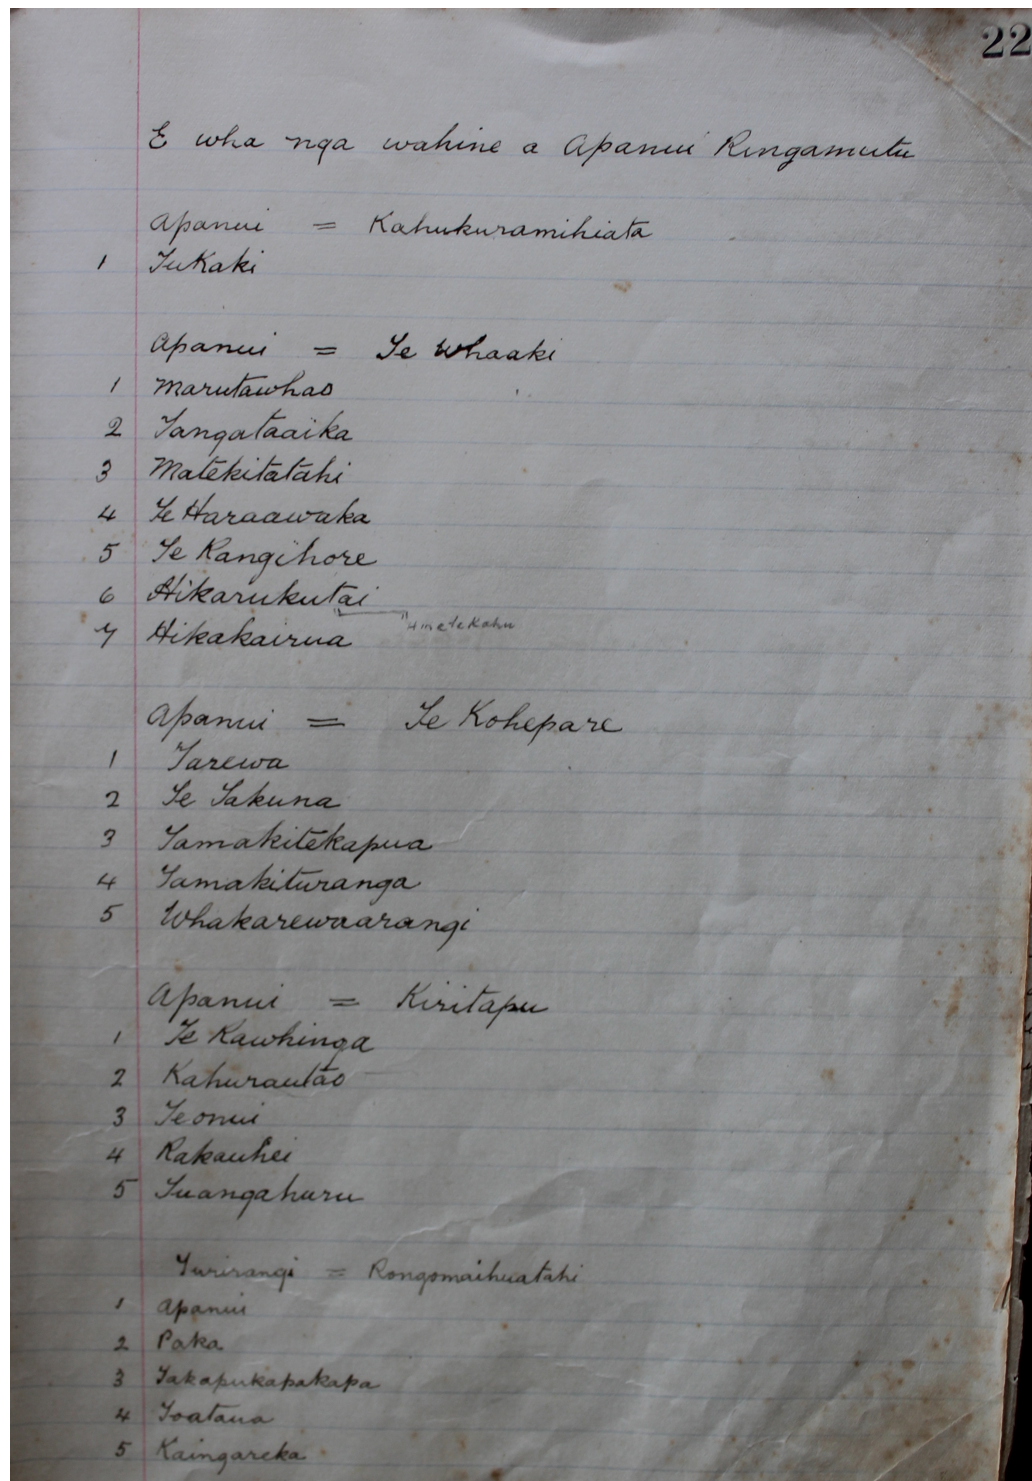 22
E wha nga wahine a Apanui Ringamutu
Apanui = Kahukuramihiata
1 TuKaki
Apanui = Te Whaaki
1 Marutawhao
2 Tangataaika
3 Matekitatahi
4 Te Haraawaka
5 Te Rangihore
6 Hikarukutai
7 Hikakairua
Apanui = Te Kohepare
1 Tarewa
2 Te Takuna
3 Tamakitekapua
4 Tamakituranga
5 Whakarewaarangi
Apanui = Kiritapu
1 Te Kawhinga
2 Kahurautao
3 Teonui
4 Rakauhei
5 Tuangahuru
Turirangi = Rongomaihuatahi
1 Apanui
2 Paka
3 Takapukapakapa
4 Toataua
5 Kaingareka